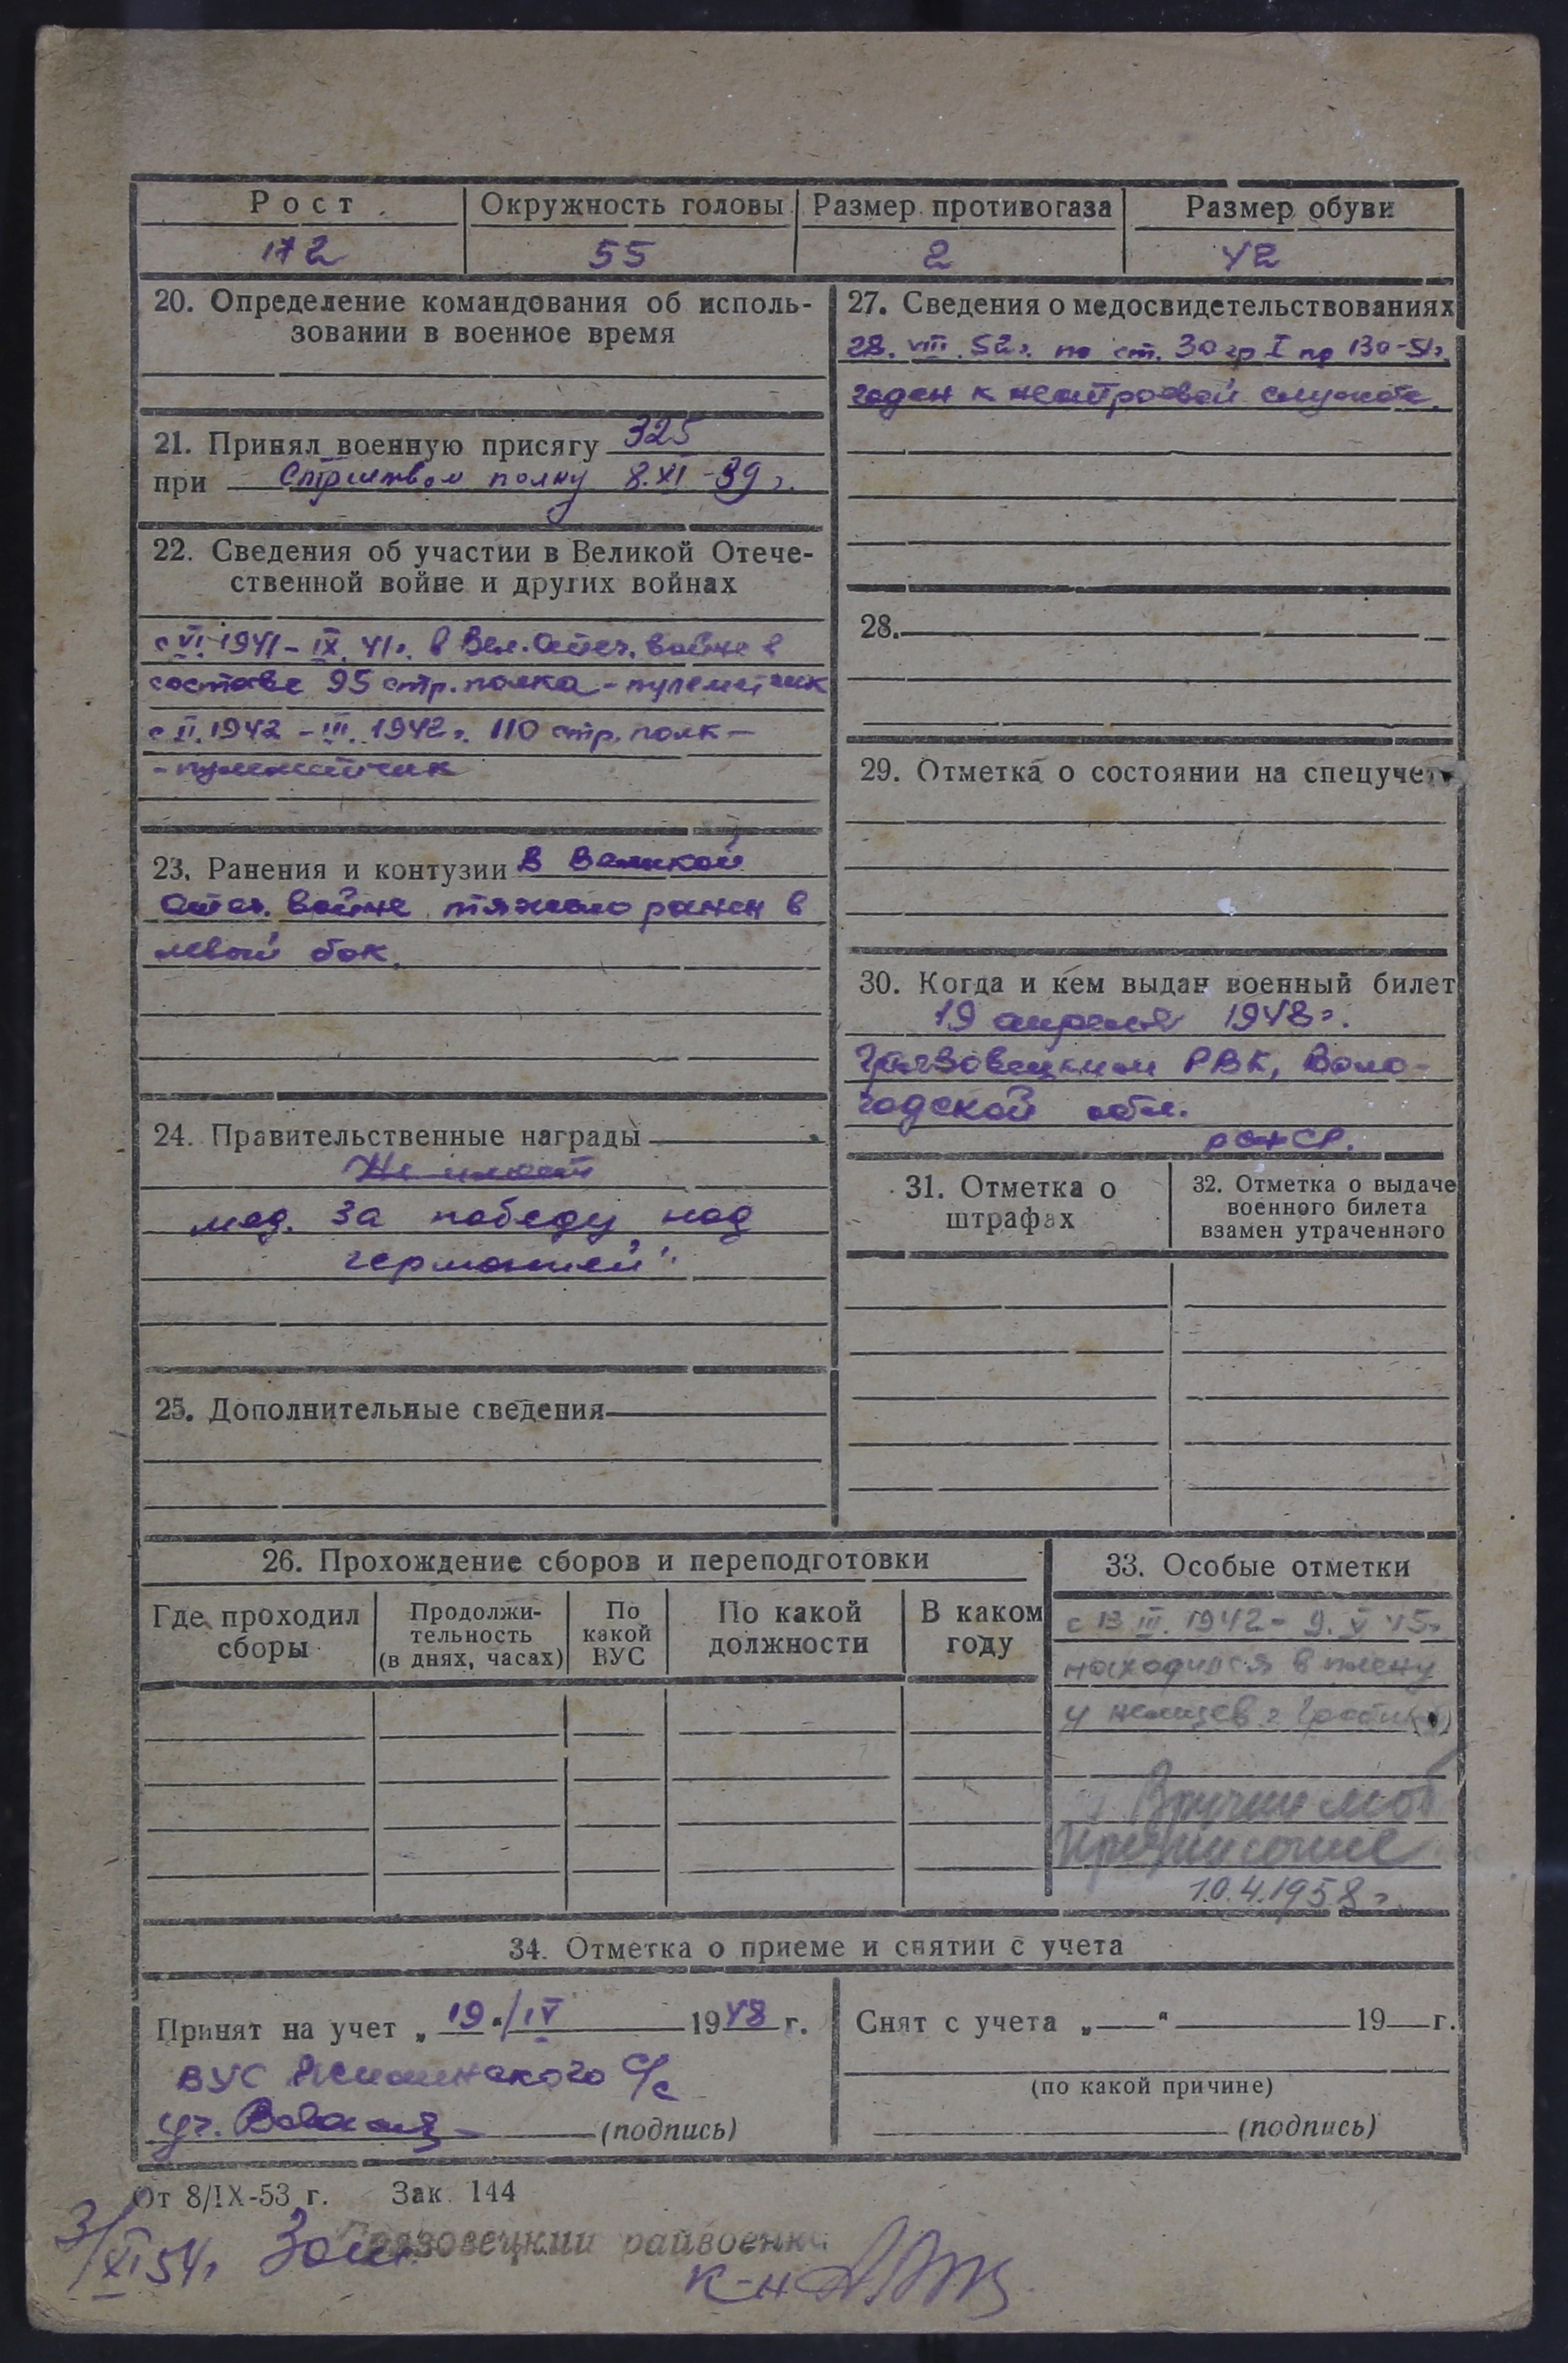 Рост Окружность головы Размер противогаза Размер обуви
172 55 2 42
20. Определение командования об исполь-
зовании в военное время
21. Принял военную присягу 325
при Стрелковом полку 8.XI-39 г.
22. Сведения об участии в Великой Отече-
ственной войне и других войнах
с VI 1941 - IX. 41г. в Вел. Отеч. войне в
составе 95 стр. полка - пулеметчик
с II. 1942 - III. 1942 г. 110 стр. полк -
- пулеметчик
23. Ранения и контузии В Великой
Отеч. войне тяжело ранен в
левый бок.
24. Правительственные награды
Не имеет
мед. За победу над
германией".
25. Дополнительные сведения
27. Сведения о медосвидетельствованиях
28. VIII. 52г. по ст. 30 гр I пр 130-51г.
годен к нестроевой службе.
28.
29. Отметка о состоянии на спецучет
30. Когда и кем выдан военный билет
19 апреля 1948г.
Грязовецким РВК, Воло-
годской обл.
РСФСР.
31. Отметка о
штрафах
32. Отметка о выдаче
военного билета
взамен утраченного
26. Прохождение сборов и переподготовки
Где проходил
сборы
Продолжи-
тельность
(в днях, часах)
По
какой
ВУС
По какой
должности
В каком
году
33. Особые отметки
с 13 III. 1942 - 9. V 45г
находился в плену
у немцев г.
Вручил моб
Предписание
10.4.1958 г.
34. Отметка о приеме и снятии с учета
Принят на учет „19"/IV 1948 г.
ВУС с/с
уч.
(подпись)
Снят с учета „ " 19 г.
(по какой причине)
(подпись)
От 8/IX-53 г. Зак. 144
3/XI 54г Грязовецкий райвоенк
к-н